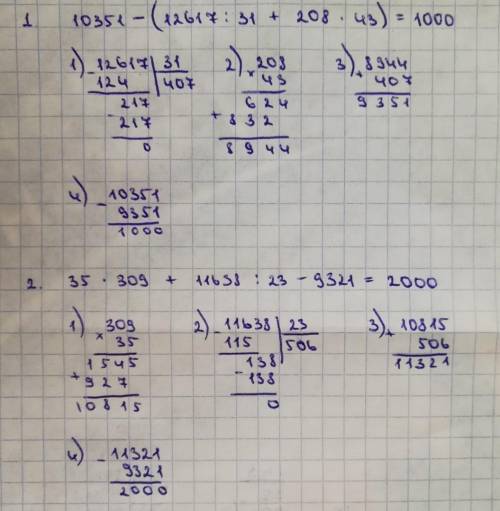 1 10351 - (12617 : 31 + 208 · 43) = 1000
1) - 12617 | 31
124 | 407
- 217
217
0
2) × 208
43
+ 624
832
8944
3) + 8944
407
9351
4) - 10351
9351
1000
2. 35 · 309 + 11638 : 23 - 9321 = 2000
1) × 309
35
+ 1545
927
10815
2) - 11638 | 23
115 | 506
- 138
138
0
3) + 10815
506
11321
4) - 11321
9321
2000